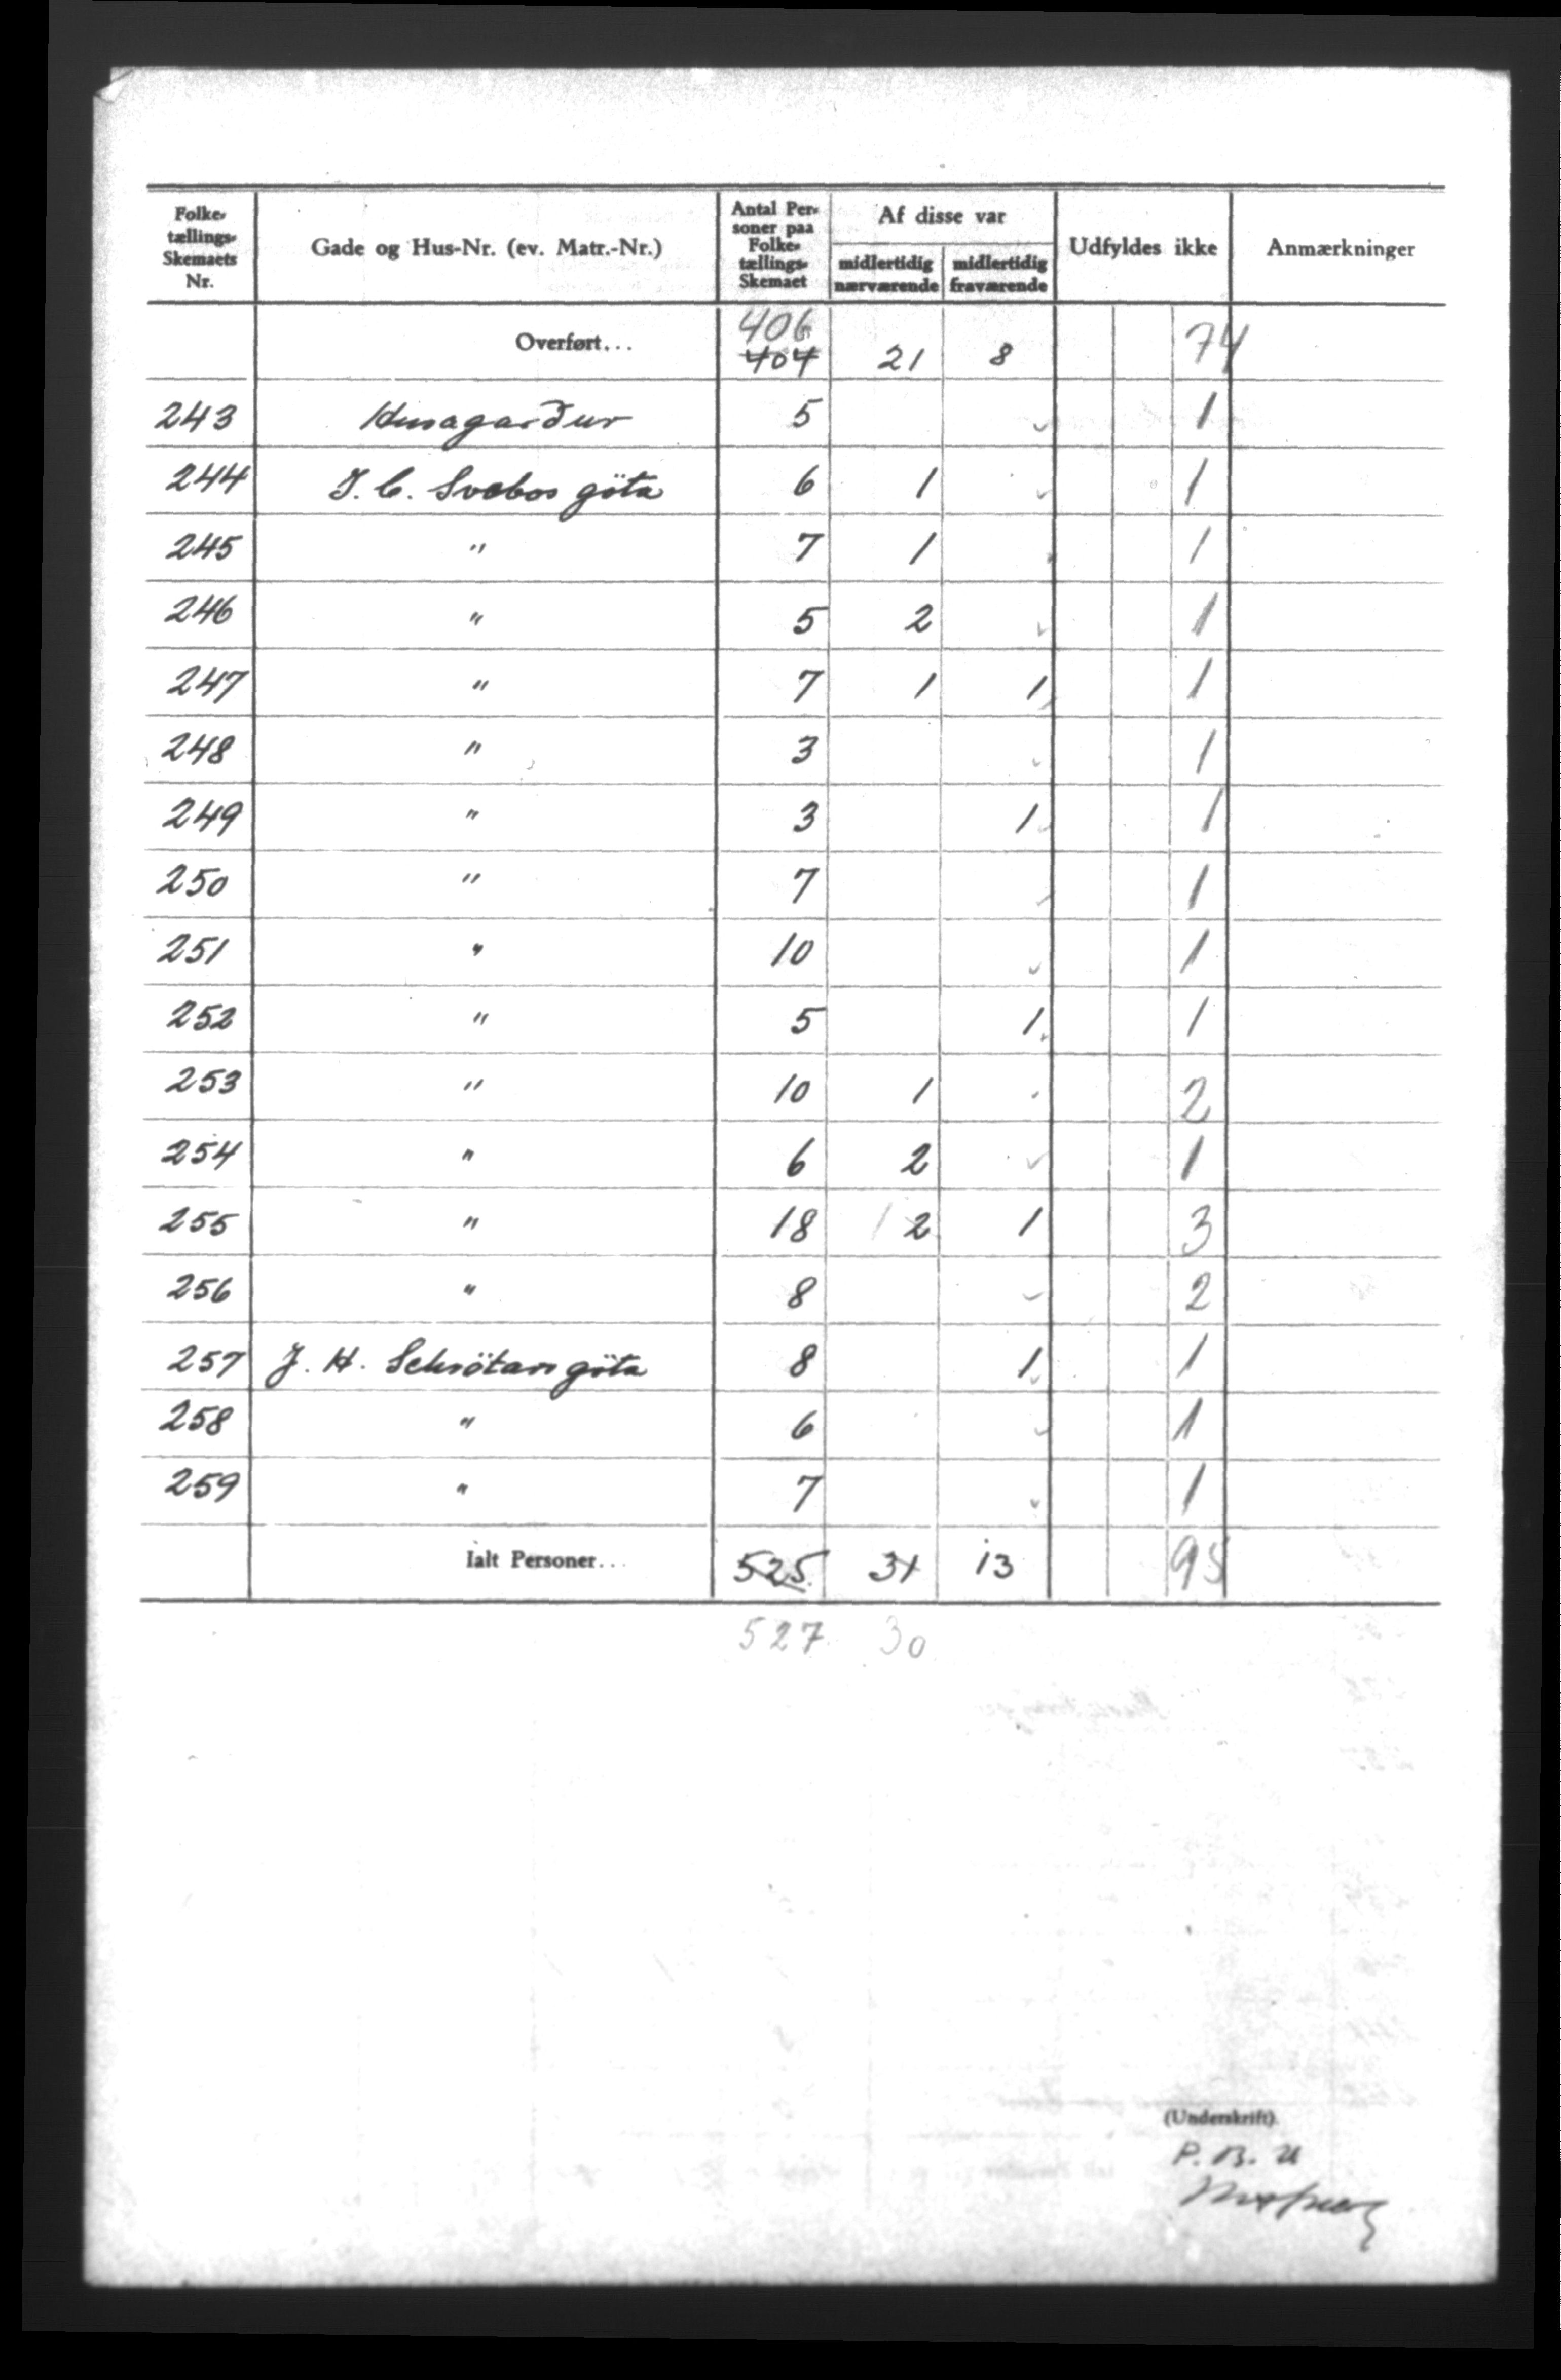 Folke-
tællings-
Skemaets
Nr.
Gade og Hus-Nr. (ev. Matr.-Nr.)
Antal Per-
soner paa
Folke-
tællings-
Skemaet
Af disse var
midlertidig
nærværende
midlertidig
fraværende
Udfyldes ikke
Anmærkninger
406
Overført... 404 21 8 74
243 Husagarður 5 1
244 J. C. Svebos göta 6 1 1
245 " 7 1 1
246 " 5 2 1
247 " 7 1 1 1
248 " 3 1
249 " 3 1 1
250 " 7 1
251 " 10 1
252 " 5 1 1
253 " 10 1 2
254 " 6 2 1
255 " 18 1 2 1 3
256 " 8 2
257 J. H. Schrötars göta 8 1 1
258 " 6 1
259 " 7 1
Ialt Personer... 525 31 13 95
527 30
(Underskrift).
P. B. U